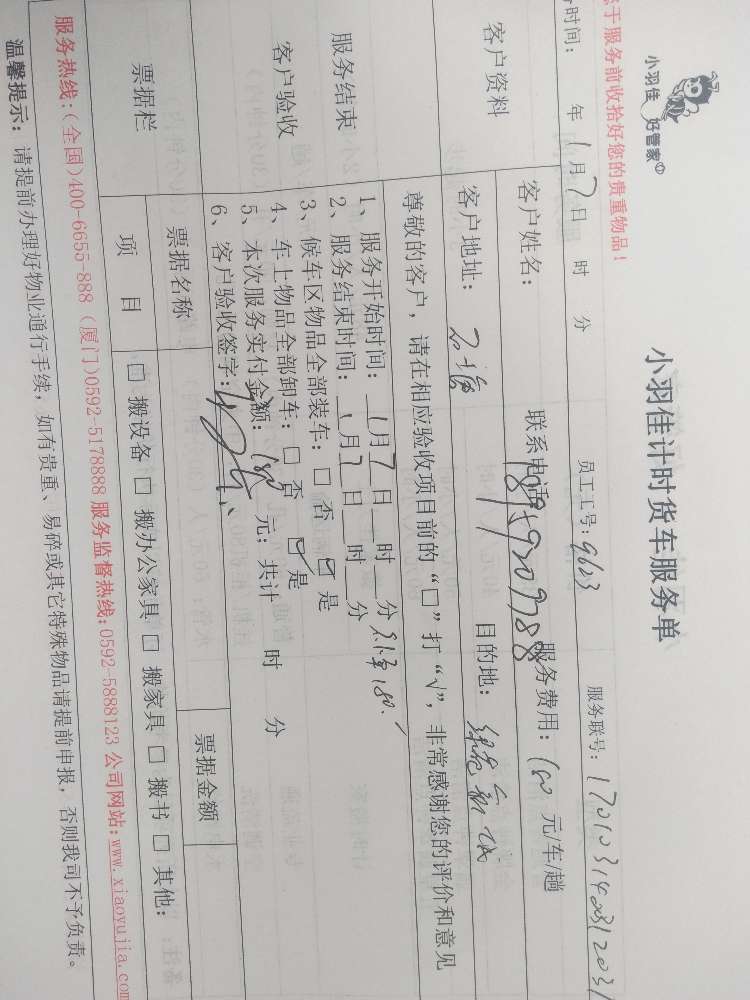 小羽佳 好管家
小羽佳计时货车服务单
于服务前收拾好您的贵重物品！
时间： 年 1月7日 时 分 员工工号：9623 服务联号：
客户资料
客户姓名： 联系电话： 服务费用：180 元/车/趟
客户地址： 目的地：
尊敬的客户，请在相应验收项目前的“□”打“√”，非常感谢您的评价和意见
服务结束
客户验收
1、服务开始时间：1月7日__时__分 180.
2、服务结束时间：1月7日__时__分
3、候车区物品全部装车：□ 否 ☑ 是
4、车上物品全部卸车：□ 否 ☑ 是
5、本次服务实付金额：180 元；共计 时 分
6、客户验收签字：
票据栏
票据名称 票据金额
项 目 □ 搬设备 □ 搬办公家具 □ 搬家具 □ 搬书 □ 其他：
服务热线：(全国)400-6655-888 (厦门)0592-5178888 服务监督热线：0592-5888123 公司网站：www.xiaoyujia.com
温馨提示：请提前办理好物业通行手续，如有贵重、易碎或其它特殊物品请提前申报，否则我司不予负责。